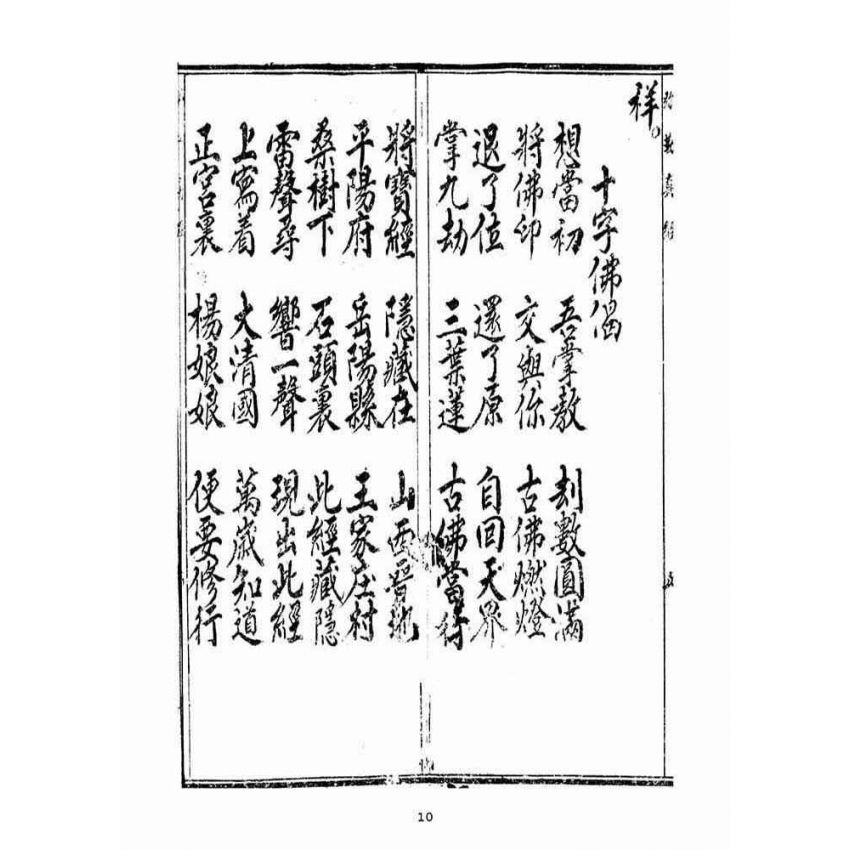 祥。
十字佛偈
想當初 吾掌教 刼數圓滿
將佛印 交與你 古佛燃燈
退了位 還了原 自回天界
掌九劫 三葉蓮 古佛當行
將寶經 隱藏在 山西晉地
平陽府 岳陽縣 王家庄村
桑樹下 石頭裏 此經藏隱
雷聲尋 響一聲 現出此經
上寫着 大清國 萬歲知道
正宮裏 楊娘娘 便要修行
10